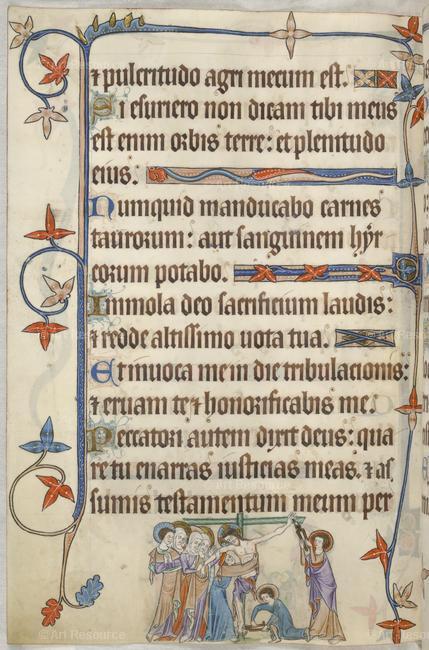 ⁊ pulcritudo agri mecum est.
Si esuriero non dicam tibi meus
est enim orbis terre: et plenitudo
eius.
Numquid manducabo carnes
taurorum: aut sanguinem hyr
corum potabo.
Immola deo sacrificium laudis:
⁊ redde altissimo uota tua.
Et inuoca me in die tribulacionis:
⁊ eruam te ⁊ honorificabis me.
Peccatori autem dixit deus: qua
re tu enarras iusticias meas. ⁊ as
sumis testamentum meum per
© Art Resource
© Art Resource